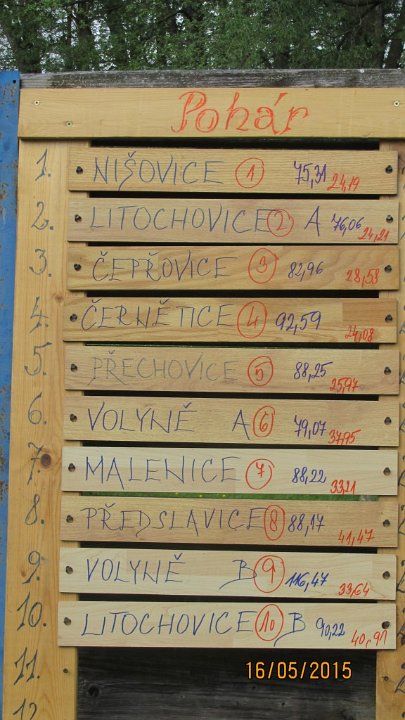 Pohár
1. NIŠOVICE 1 75,31 24,19
2. LITOCHOVICE 2 A 76,06 24,21
3. ČEPŘOVICE 3 82,96 28,58
4. ČERNĚTICE 4 92,59 24,08
5. PŘECHOVICE 5 88,25 25,97
6. VOLYNĚ A 6 79,07 37,95
7. MALENICE 7 88,22 33,21
8. PŘEDSLAVICE 8 88,17 41,47
9. VOLYNĚ B 9 116,47 39,64
10. LITOCHOVICE 10 B 90,22 40,91
11.
12.
16/05/2015